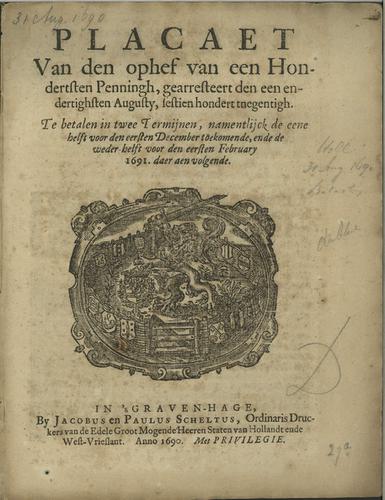 31 Aug. 1690
PLACAET
Van den ophef van een Hon-
dertsten Penningh, gearresteert den een en-
dertighsten Augusty, sestien hondert tnegentigh.
Te betalen in twee Termijnen, namentlijck de eene
helft voor den eersten December toekomende, ende de
weder helft voor den eersten February
1691. daer aen volgende.
IN 'sGRAVEN-HAGE,
By JACOBUS en PAULUS SCHELTUS, Ordinaris Druc-
kers van de Edele Groot Mogende Heeren Staten van Hollandt ende
West-Vrieslant. Anno 1690. Met PRIVILEGIE.